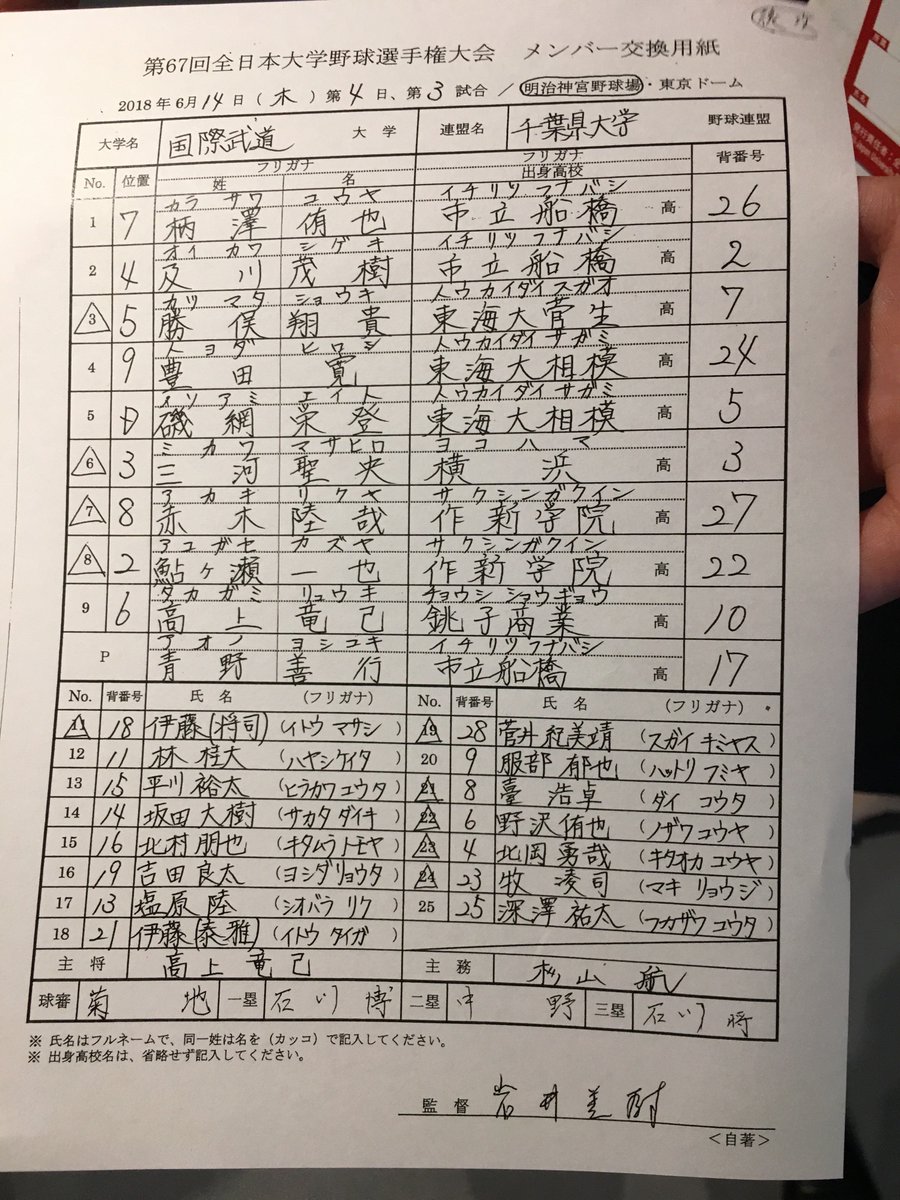 第67回全日本大学野球選手権大会 メンバー交換用紙
2018年6月14日(木)第4日、第3試合/明治神宮野球場・東京ドーム
大学名 国際武道 大学 連盟名 千葉県大学 野球連盟
フリガナ フリガナ
No. 位置 姓 名 出身高校 背番号
カラサワ コウヤ イチリツフナバシ
1 7 柄澤 侑也 市立船橋 高 26
オイカワ シゲキ イチリツフナバシ
2 4 及川 茂樹 市立船橋 高 2
カツマタ ショウキ トウカイダイスガオ
3 5 勝俣 翔貴 東海大菅生 高 7
トヨダ ヒロシ トウカイダイサガミ
4 9 豊田 寛 東海大相模 高 24
イソアミ エイト トウカイダイサガミ
5 D 磯網 栄登 東海大相模 高 5
ミカワ マサヒロ ヨコハマ
6 3 三河 聖央 横浜 高 3
アカキ リクヤ サクシンガクイン
7 8 赤木 陸哉 作新学院 高 27
アユガセ カズヤ サクシンガクイン
8 2 鮎ヶ瀬 一也 作新学院 高 22
タカガミ リュウキ チョウシショウギョウ
9 6 高上 竜己 銚子商業 高 10
アオノ ヨシユキ イチリツフナバシ
P 青野 善行 市立船橋 高 17
No. 背番号 氏名 (フリガナ) No. 背番号 氏名 (フリガナ)
11 18 伊藤(将司) (イトウ マサシ) 19 28 菅井紀美靖 (スガイ キミヤス)
12 11 林 桂大 (ハヤシケイタ) 20 9 服部郁也 (ハットリフミヤ)
13 15 平川裕太 (ヒラカワコウタ) 21 8 臺 浩卓 (ダイ コウタ)
14 14 坂田大樹 (サカタダイキ) 22 6 野沢侑也 (ノザワコウヤ)
15 16 北村朋也 (キタムラトモヤ) 23 4 北岡勇哉 (キタオカ ユウヤ)
16 19 吉田良太 (ヨシダリョウタ) 24 23 牧 凌司 (マキ リョウジ)
17 13 塩原陸 (シオバラ リク) 25 25 深澤祐太 (フカザワ コウタ)
18 21 伊藤(泰雅) (イトウ タイガ)
主将 高上竜己 主務 杉山 航
球審 菊地 一塁 石川博 二塁 中野 三塁 石川将
※ 氏名はフルネームで、同一姓は名を(カッコ)で記入してください。
※ 出身高校名は、省略せず記入してください。
監督 岩井美樹
<自著>